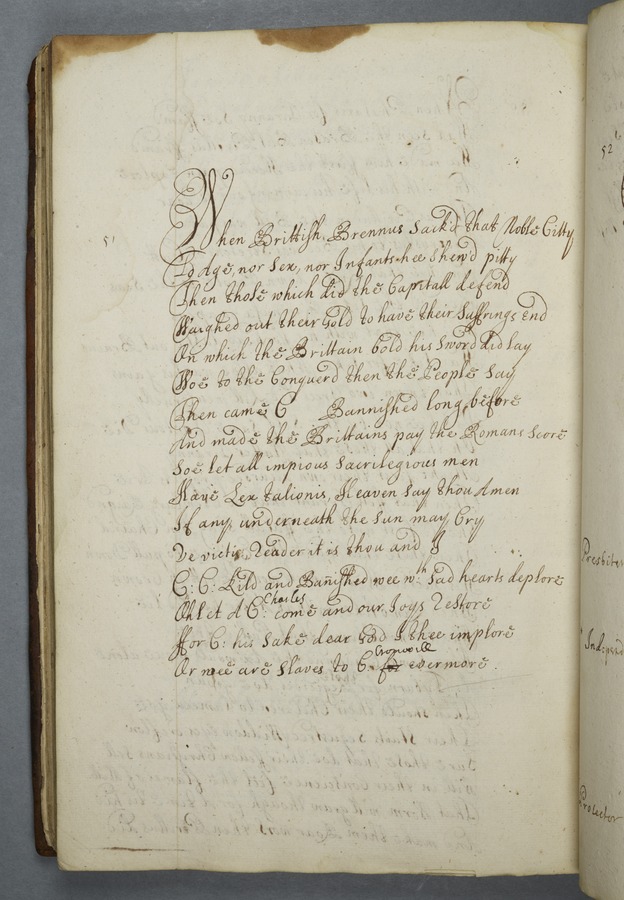 51
When Brittish Brennus Sack'd that Noble Citty
Nor Age, nor Sex, nor Infants hee Shew'd pitty
Then those which did the Capitall defend
Waighed out their Gold to have their Suffrings end
On which the Brittain bold his Sword did lay
Woe to the Conquerd then the People Say
Then came C Bannished long before
And made the Brittains pay the Romans Score
Soe let all impious Sacrilegious men
Have Lex talionis, Heaven Say thou Amen
If any underneath the Sun may Cry
Ve victis, Reader it is thou and I
C: C: Kild and Banished wee wth Sad hearts deplore
Charles
Oh let A C: come and our Joys Restore
ffor C: his Sake dear God I thee implore
Cromwill
Or wee are Slaves to C: for evermore
52
Presbiter
Independ
Protector